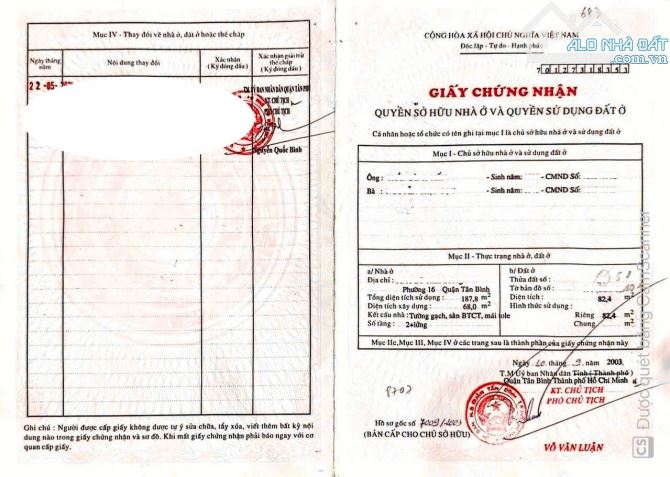 Mục IV - Thay đổi về nhà ở, đất ở hoặc thế chấp
Ngày tháng năm
Nội dung thay đổi
Xác nhận (Ký đóng dấu)
Xác nhận giải trừ thế chấp (Ký đóng dấu)
22-05-
TM. ỦY BAN NHÂN DÂN QUẬN TÂN PHÚ
KT. CHỦ TỊCH
PHÓ CHỦ TỊCH
Nguyễn Quốc Bình
Ghi chú : Người được cấp giấy không được tự ý sửa chữa, tẩy xóa, viết thêm bất kỳ nội
dung nào trong giấy chứng nhận và sơ đồ. Khi mất giấy chứng nhận phải báo ngay với cơ
quan cấp giấy.
683
ALO NHÀ ĐẤT
CỘNG HÒA XÃ HỘI CHỦ NGHĨA VIỆT NAM
Độc lập - Tự do - Hạnh phúc
70127318353
GIẤY CHỨNG NHẬN
QUYỀN SỞ HỮU NHÀ Ở VÀ QUYỀN SỬ DỤNG ĐẤT Ở
Cá nhân hoặc tổ chức có tên ghi tại mục I là chủ sở hữu nhà ở và sử dụng đất ở
Mục I - Chủ sở hữu nhà ở và sử dụng đất ở
Ông : - Sinh năm: - CMND Số:
Bà : - Sinh năm: - CMND Số:
Mục II - Thực trạng nhà ở, đất ở
a/ Nhà ở
Địa chỉ :
Phường 16 Quận Tân Bình
Tổng diện tích sử dụng : 187,8 m2
Diện tích xây dựng : 68,0 m2
Kết cấu nhà : Tường gạch, sàn BTCT, mái tole
Số tầng : 2+lửng
b/ Đất ở
Thửa đất số :
Tờ bản đồ số : 10
Diện tích : 82,4 m2
Hình thức sử dụng :
Riêng 82,4 m2
Chung m2
Mục IIc, Mục III, Mục IV ở các trang sau là thành phần của giấy chứng nhận này
Ngày 10 tháng 9 năm 2003
T.M Ủy ban Nhân dân Tỉnh (Thành phố)
Quận Tân Bình Thành phố Hồ Chí Minh
KT. CHỦ TỊCH
PHÓ CHỦ TỊCH
8703
Hồ sơ gốc số 7009/2003
(BẢN CẤP CHO CHỦ SỞ HỮU)
VÕ VĂN LUẬN
CS Được quét bằng CamScanner